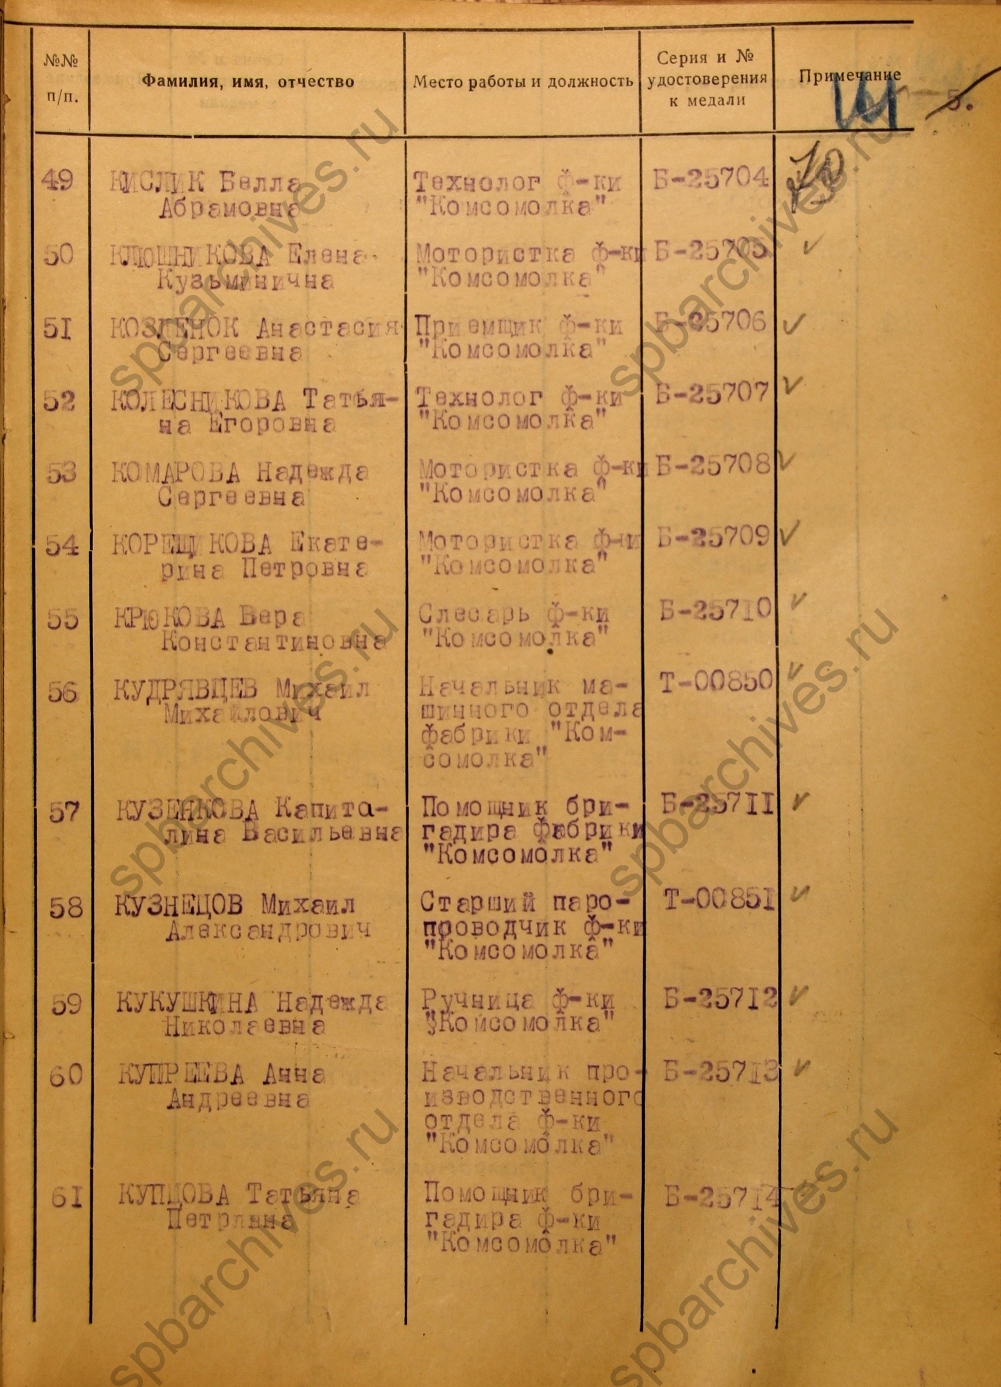 №№ п/п. Фамилия, имя, отчество Место работы и должность Серия и № удостоверения к медали Примечание
5.
49 КИСЛИК Белла Технолог ф-ки Б-25704
Абрамовна "Комсомолка"
50 КЛЮШНИКОВА Елена Мотористка ф-ки Б-25705
Кузьминична "Комсомолка"
51 КОЗЛЕНОК Анастасия Приемщик ф-ки Б-25706
Сергеевна "Комсомолка"
52 КОЛЕСНИКОВА Татья- Технолог ф-ки Б-25707
на Егоровна "Комсомолка"
53 КОМАРОВА Надежда Мотористка ф-ки Б-25708
Сергеевна "Комсомолка"
54 КОРЕЩИКОВА Екате- Мотористка ф-ки Б-25709
рина Петровна "Комсомолка"
55 КРЮКОВА Вера Слесарь ф-ки Б-25710
Константиновна "Комсомолка"
56 КУДРЯВЦЕВ Михаил Начальник ма- Т-00850
Михайлович шинного отдела
фабрики "Ком-
сомолка"
57 КУЗЕНКОВА Капита- Помощник бри- Б-25711
лина Васильевна гадира фабрики
"Комсомолка"
58 КУЗНЕЦОВ Михаил Старший паро- Т-00851
Александрович проводчик ф-ки
"Комсомолка"
59 КУКУШКИНА Надежда Ручница ф-ки Б-25712
Николаевна "Комсомолка"
60 КУПРЕЕВА Анна Начальник про- Б-25713
Андреевна изводственного
отдела ф-ки
"Комсомолка"
61 КУПЦОВА Татьяна Помощник бри- Б-25714
Петровна гадира ф-ки
"Комсомолка"
spbarchives.ru
spbarchives.ru
spbarchives.ru
spbarchives.ru
spbarchives.ru
spbarchives.ru